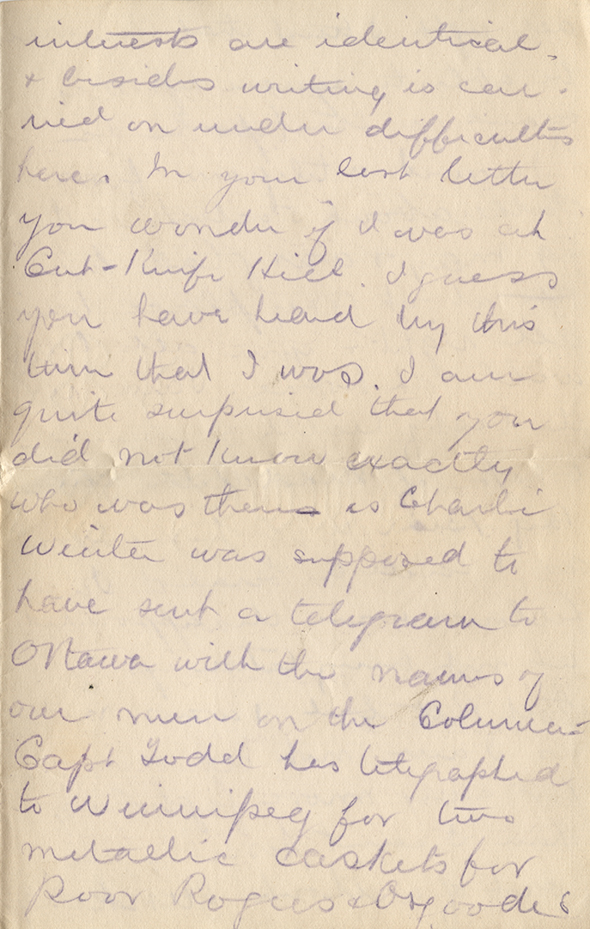 interests are identical.
& besides writing is car-
ried on under difficulties
here. In your last letter
you wonder if I was at
Cut-Knife Hill. I guess
you have heard by this
time that I was. I am
quite surprised that you
did not know exactly
who was there as Charlie
Winter was supposed to
have sent a telegram to
Ottawa with the names of
our men on the Column-
Capt Todd has telegraphed
to Winnipeg for two
metallic caskets for
poor Rogers & Osgoodes